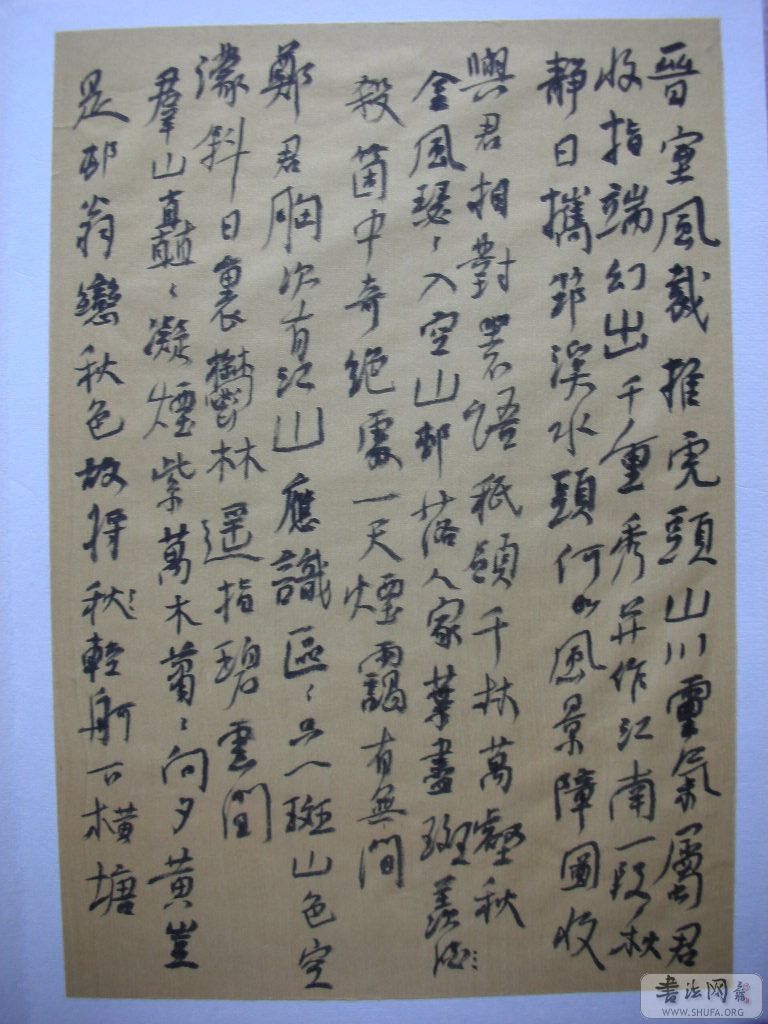 晉室風裁推虎頭山川靈氣屬君
收指端幻出千重秀并作江南一段秋
靜日攜筇溪水頭何如風景障圖收
與君相對若語秖領千林萬壑秋
金風瑟々入空山邨落人家葉盡斑羨
殺箇中奇絕處一天煙靄有無間
鄭君胸次有江山應識區々只一斑山色空
濛斜日裏鬱林遙指碧雲間
群山矗矗凝煙紫萬木蕭々向夕黃豈
是邨翁戀秋色故將秋輕舸下橫塘
書法网
WWW.SHUFA.ORG